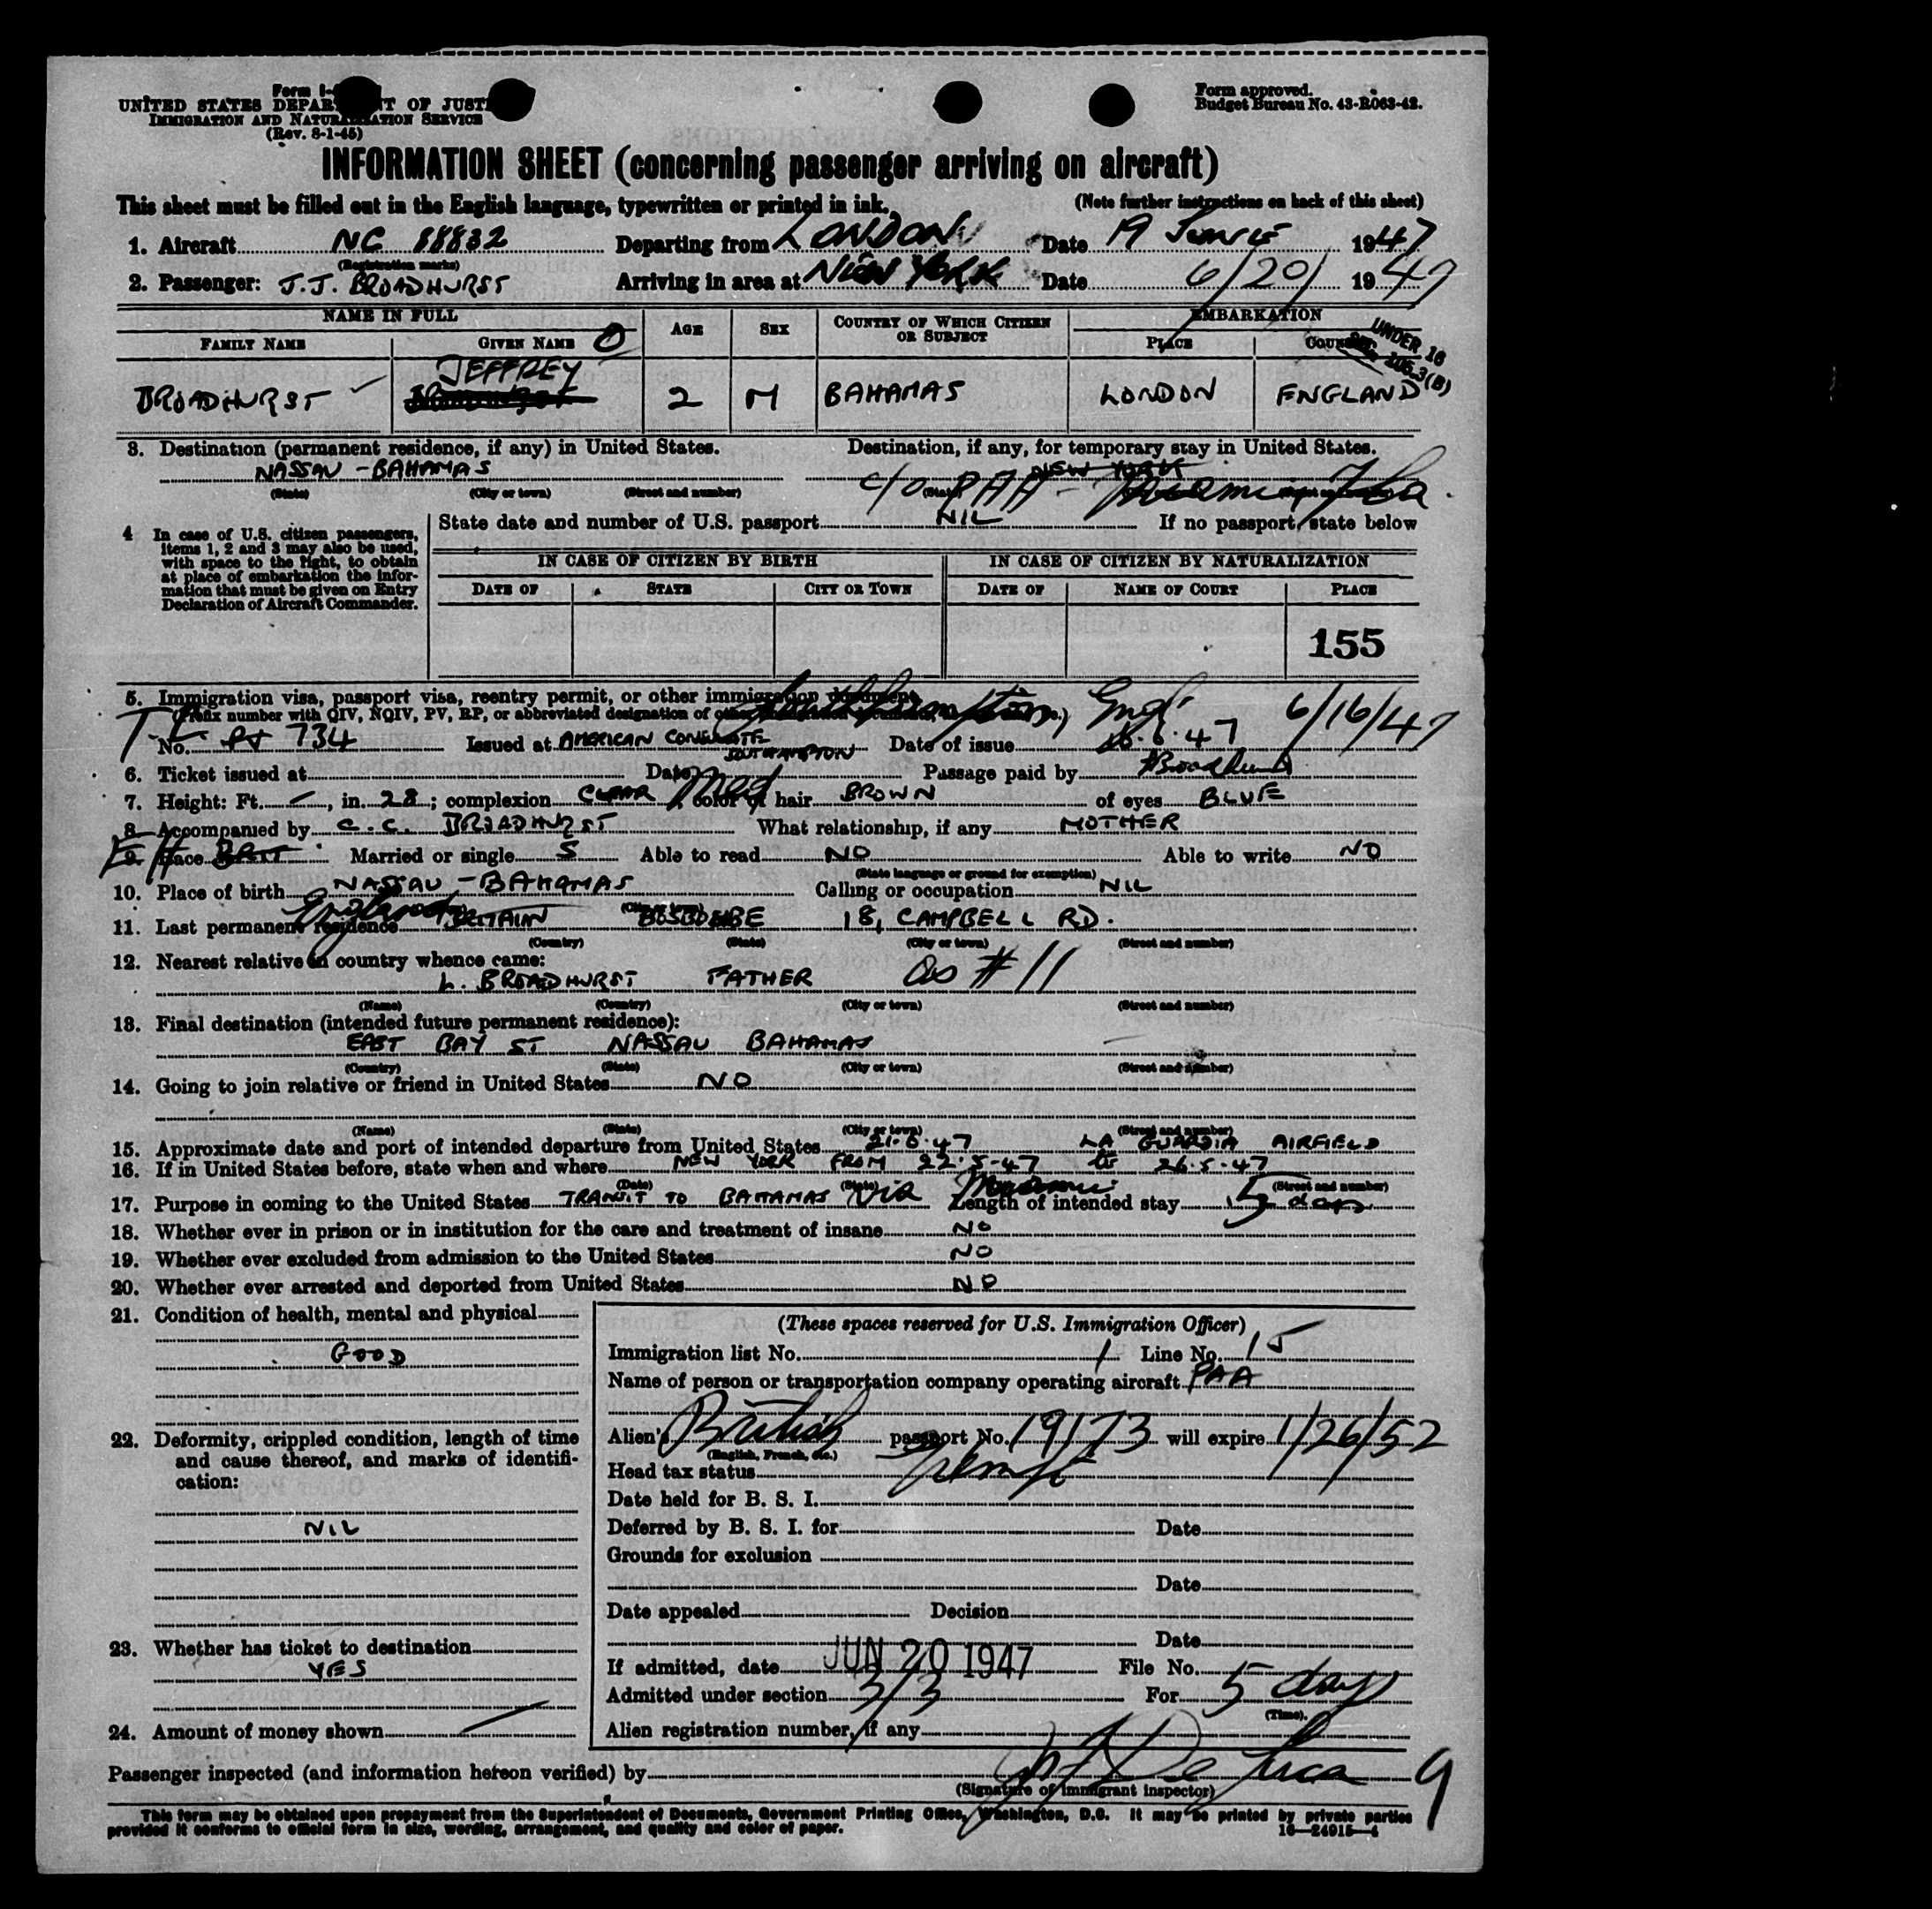 Form I-
UNITED STATES DEPARTMENT OF JUSTICE
IMMIGRATION AND NATURALIZATION SERVICE
(Rev. 8-1-45)
Form approved.
Budget Bureau No. 43-R063-42.
INFORMATION SHEET (concerning passenger arriving on aircraft)
This sheet must be filled out in the English language, typewritten or printed in ink. (Note further instructions on back of this sheet)
1. Aircraft NC 88832 Departing from LONDON Date 19 JUNE 1947
(Registration marks)
2. Passenger: J.J. BROADHURST Arriving in area at NEW YORK Date 6/20/ 1947
NAME IN FULL AGE SEX COUNTRY OF WHICH CITIZEN OR SUBJECT EMBARKATION
FAMILY NAME GIVEN NAME PLACE COUNTRY
UNDER 16
BROADHURST JEFFREY 2 M BAHAMAS LONDON ENGLAND
3. Destination (permanent residence, if any) in United States. Destination, if any, for temporary stay in United States.
NASSAU - BAHAMAS NEW YORK
c/o PAA - Miami Fla.
(State) (City or town) (Street and number)
4 In case of U.S. citizen passengers, items 1, 2 and 3 may also be used, with space to the right, to obtain at place of embarkation the information that must be given on Entry Declaration of Aircraft Commander.
State date and number of U.S. passport NIL If no passport, state below
IN CASE OF CITIZEN BY BIRTH IN CASE OF CITIZEN BY NATURALIZATION
DATE OF STATE CITY OR TOWN DATE OF NAME OF COURT PLACE
155
5. Immigration visa, passport visa, reentry permit, or other immigration document
(Prefix number with QIV, NQIV, PV, RP, or abbreviated designation of
Southampton, Engl. 6/16/47
No. 734 Issued at AMERICAN CONSULATE SOUTHAMPTON Date of issue 16.6.47
6. Ticket issued at Date Passage paid by Broadhurst
7. Height: Ft. –, in. 28; complexion CLEAR Med color of hair BROWN of eyes BLUE
8. Accompanied by C.C. BROADHURST What relationship, if any MOTHER
9. Race BRIT Married or single S Able to read NO Able to write NO
(State language or ground for exemption)
10. Place of birth NASSAU - BAHAMAS Calling or occupation NIL
(City or town)
11. Last permanent residence England BRITAIN BOSCOMBE 18, CAMPBELL RD.
(Country) (State) (City or town) (Street and number)
12. Nearest relative in country whence came:
L. BROADHURST FATHER as #11
(Name) (Country) (City or town) (Street and number)
13. Final destination (intended future permanent residence):
EAST BAY ST NASSAU BAHAMAS
(Country) (State) (City or town) (Street and number)
14. Going to join relative or friend in United States NO
(Name) (State) (City or town) (Street and number)
15. Approximate date and port of intended departure from United States 21.6.47 LA GUARDIA AIRFIELD
16. If in United States before, state when and where NEW YORK FROM 22.5.47 to 26.5.47
(Date) (State) (Street and number)
17. Purpose in coming to the United States TRANSIT TO BAHAMAS via Miami Length of intended stay 5 days
18. Whether ever in prison or in institution for the care and treatment of insane NO
19. Whether ever excluded from admission to the United States NO
20. Whether ever arrested and deported from United States NO
21. Condition of health, mental and physical
GOOD
22. Deformity, crippled condition, length of time and cause thereof, and marks of identification:
NIL
23. Whether has ticket to destination
YES
24. Amount of money shown
(These spaces reserved for U.S. Immigration Officer)
Immigration list No. 1 Line No. 15
Name of person or transportation company operating aircraft PAA
Alien's British passport No. 19173 will expire 1/26/52
(English, French, etc.)
Head tax status Exempt
Date held for B. S. I.
Deferred by B. S. I. for Date
Grounds for exclusion
Date
Date appealed Decision
Date
If admitted, date JUN 20 1947 File No.
Admitted under section 3/3 For 5 days
(Time).
Alien registration number, if any
Passenger inspected (and information hereon verified) by De Luca 9
(Signature of immigrant inspector)
This form may be obtained upon prepayment from the Superintendent of Documents, Government Printing Office, Washington, D.C. It may be printed by private parties
provided it conforms to official form in size, wording, arrangement, and quality and color of paper. 16—24915-4